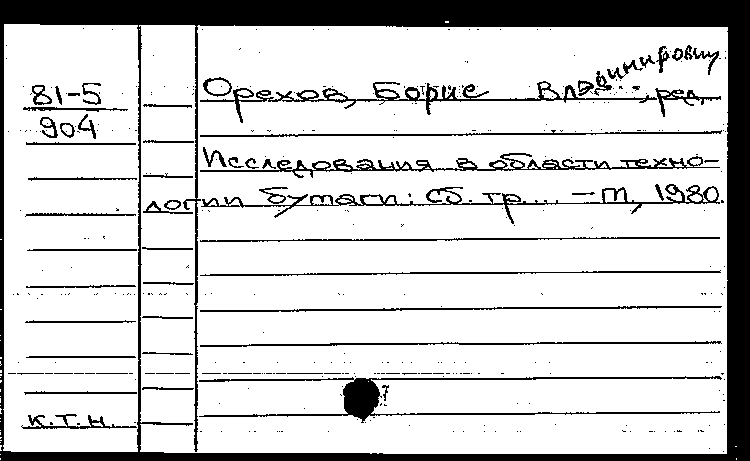 81-5
904
Орехов, Борис Владимирович, ред.
Исследования в области техно-
логии бумаги: Сб. тр... – М, 1980.
к.т.н.